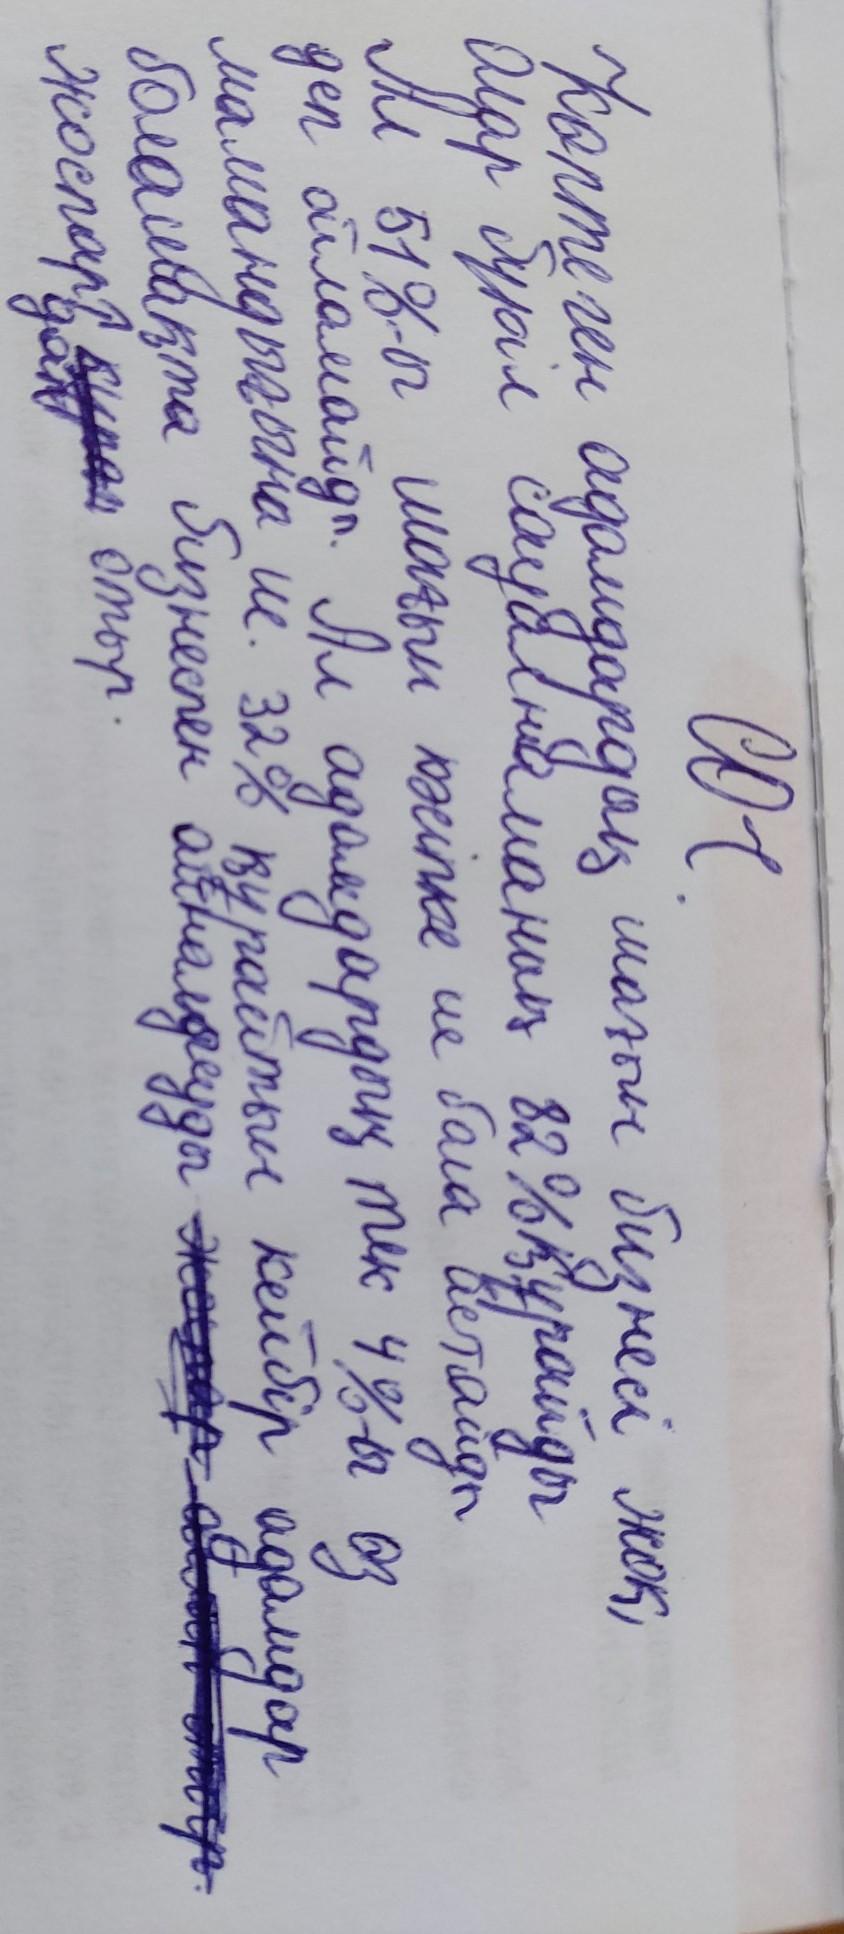 Көптеген адамдардың шағын бизнесі жоқ,
Олар бүкіл сауалнаманың 82% құрайды
Ал 51%-ы шағын кәсіпке ие бола
деп ойламайды. Ал адамдардың тек 4%-ы өз
мамандығына ие. 32% құрайтын кейбір адамдар
болашақта бизнеспен айналысуды
жоспарлап отыр.